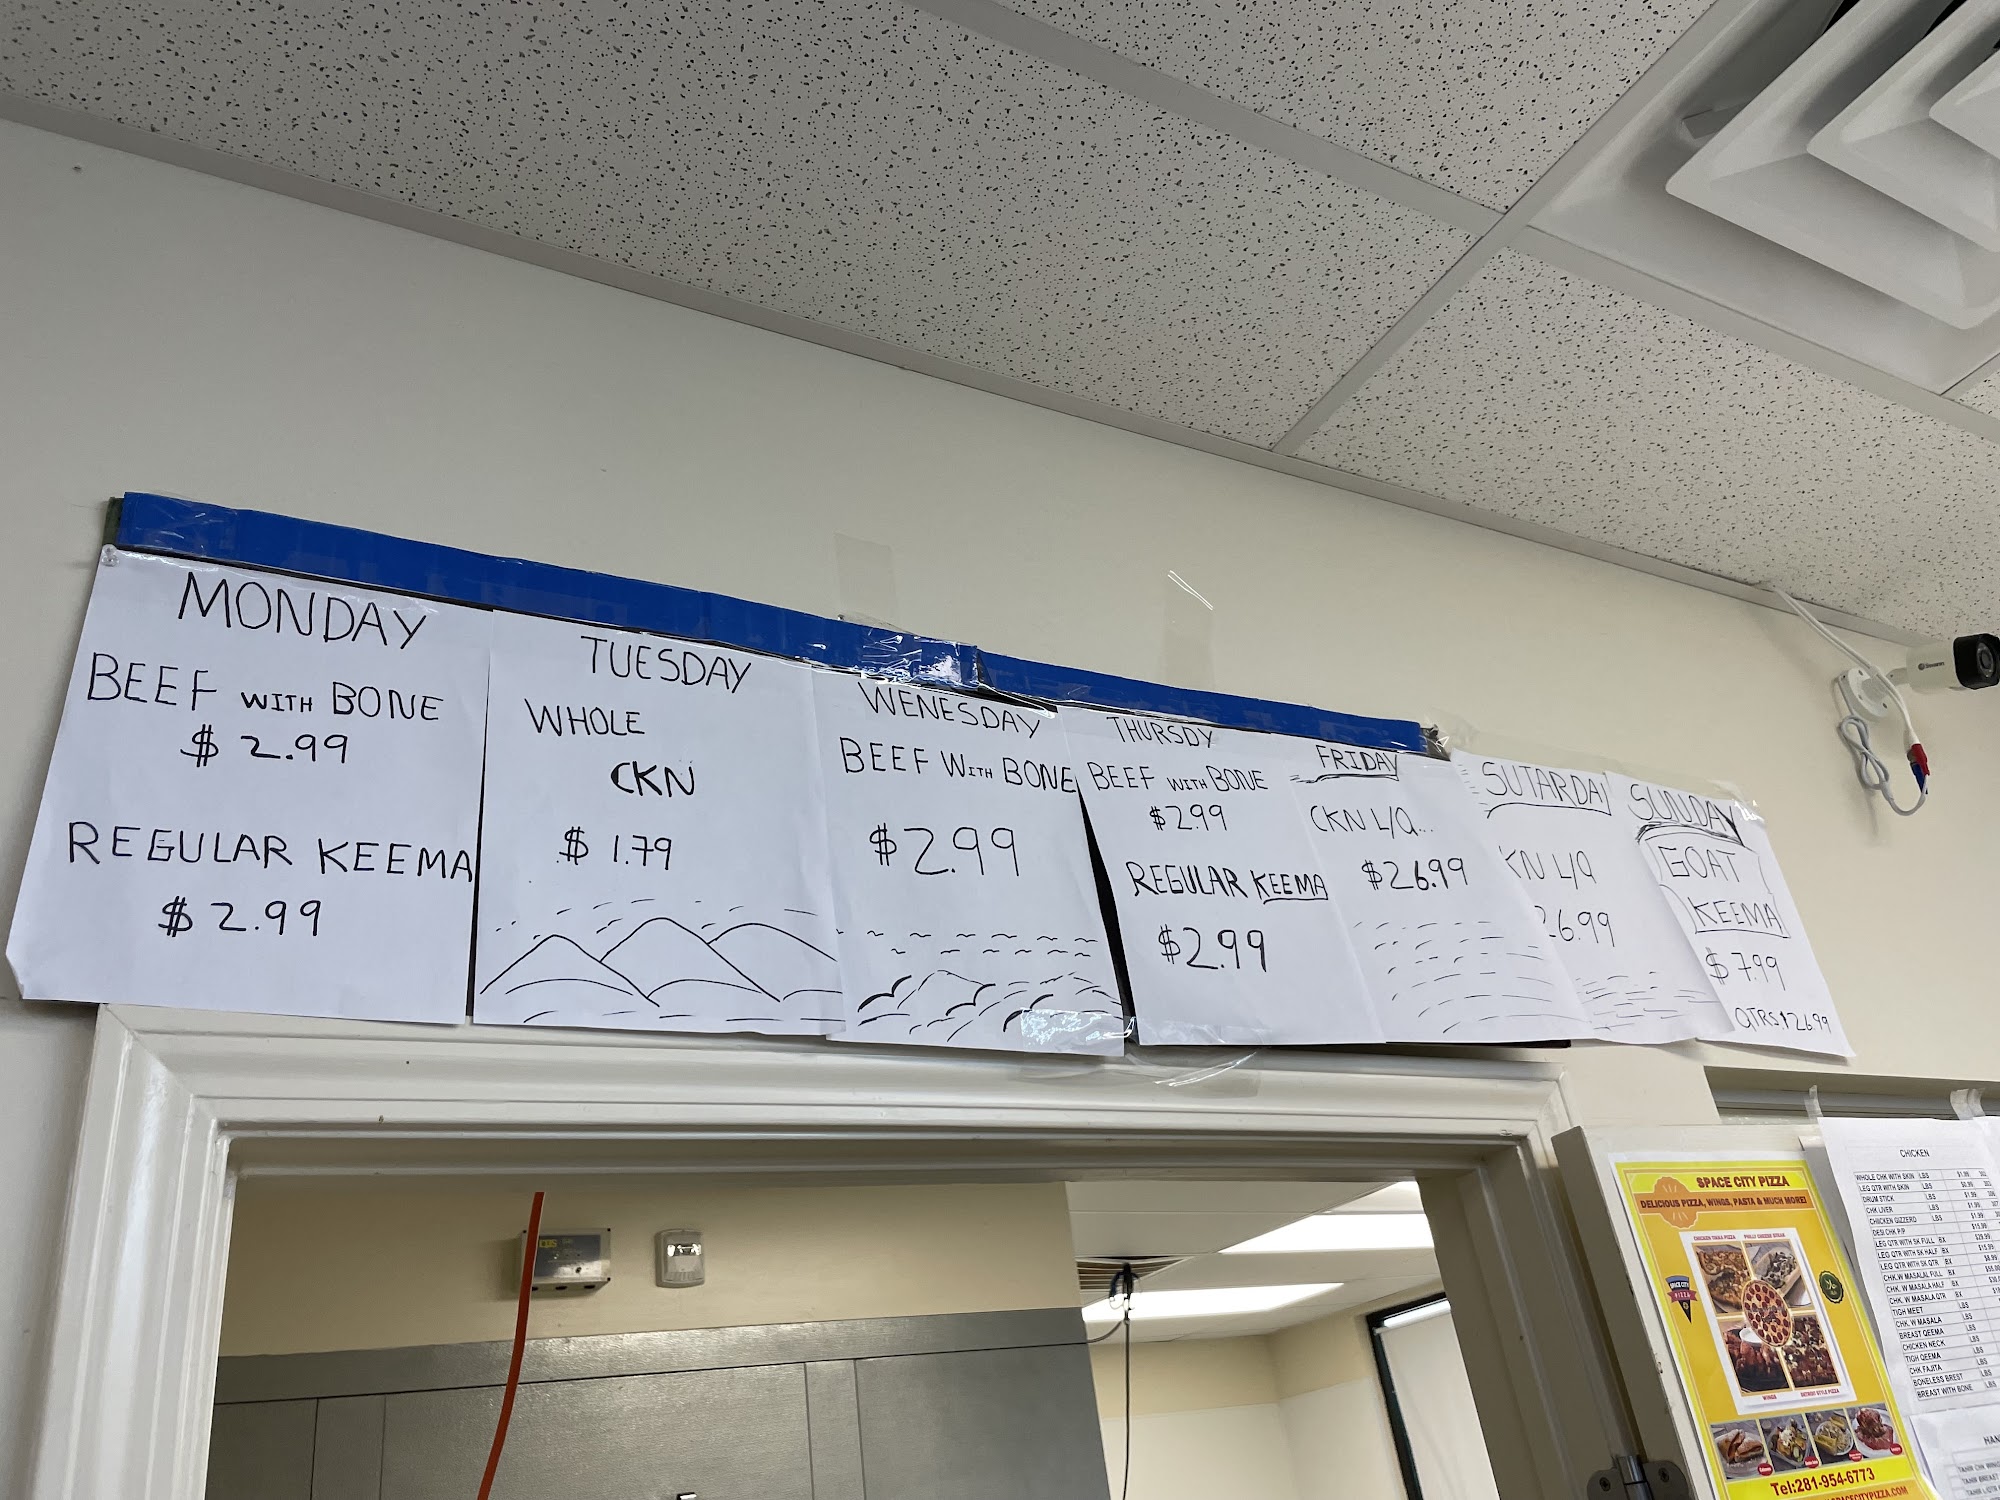 MONDAY
BEEF WITH BONE
$ 2.99
REGULAR KEEMA
$ 2.99
TUESDAY
WHOLE
CKN
$ 1.79
WENESDAY
BEEF WITH BONE
$2.99
THURSDY
BEEF WITH BONE
$2.99
REGULAR KEEMA
$2.99
FRIDAY
CKN L/Q...
$26.99
SUTARDAY
KN L/Q
26.99
SUNDAY
GOAT
KEEMA
$7.99
QTRS $26.99
SPACE CITY PIZZA
DELICIOUS PIZZA, WINGS, PASTA & MUCH MORE!
CHICKEN TIKKA PIZZA
PHILLY CHEESE STEAK
SPACE CITY
PIZZA
WINGS
DETROIT STYLE PIZZA
Tel:281-954-6773
SPACECITYPIZZA.COM
CHICKEN
WHOLE CHK WITH SKIN LBS
LEG QTR WITH SKIN LBS
DRUM STICK LBS
CHK LIVER LBS
CHICKEN GIZZERD LBS
DESI CHK P/P
LEG QTR WITH SK FULL BX
LEG QTR WITH SK HALF BX
LEG QTR WITH SK QTR BX
CHK.W MASALAL FULL BX
CHK. W MASALA HALF BX
CHK. W MASALA QTR BX
TIGH MEET LBS
CHK. W MASALA LBS
BREAST QEEMA LBS
CHICKEN NECK LBS
TIGH QEEMA LBS
CHK FAJITA LBS
BONELESS BREST LBS
BREAST WITH BONE LBS